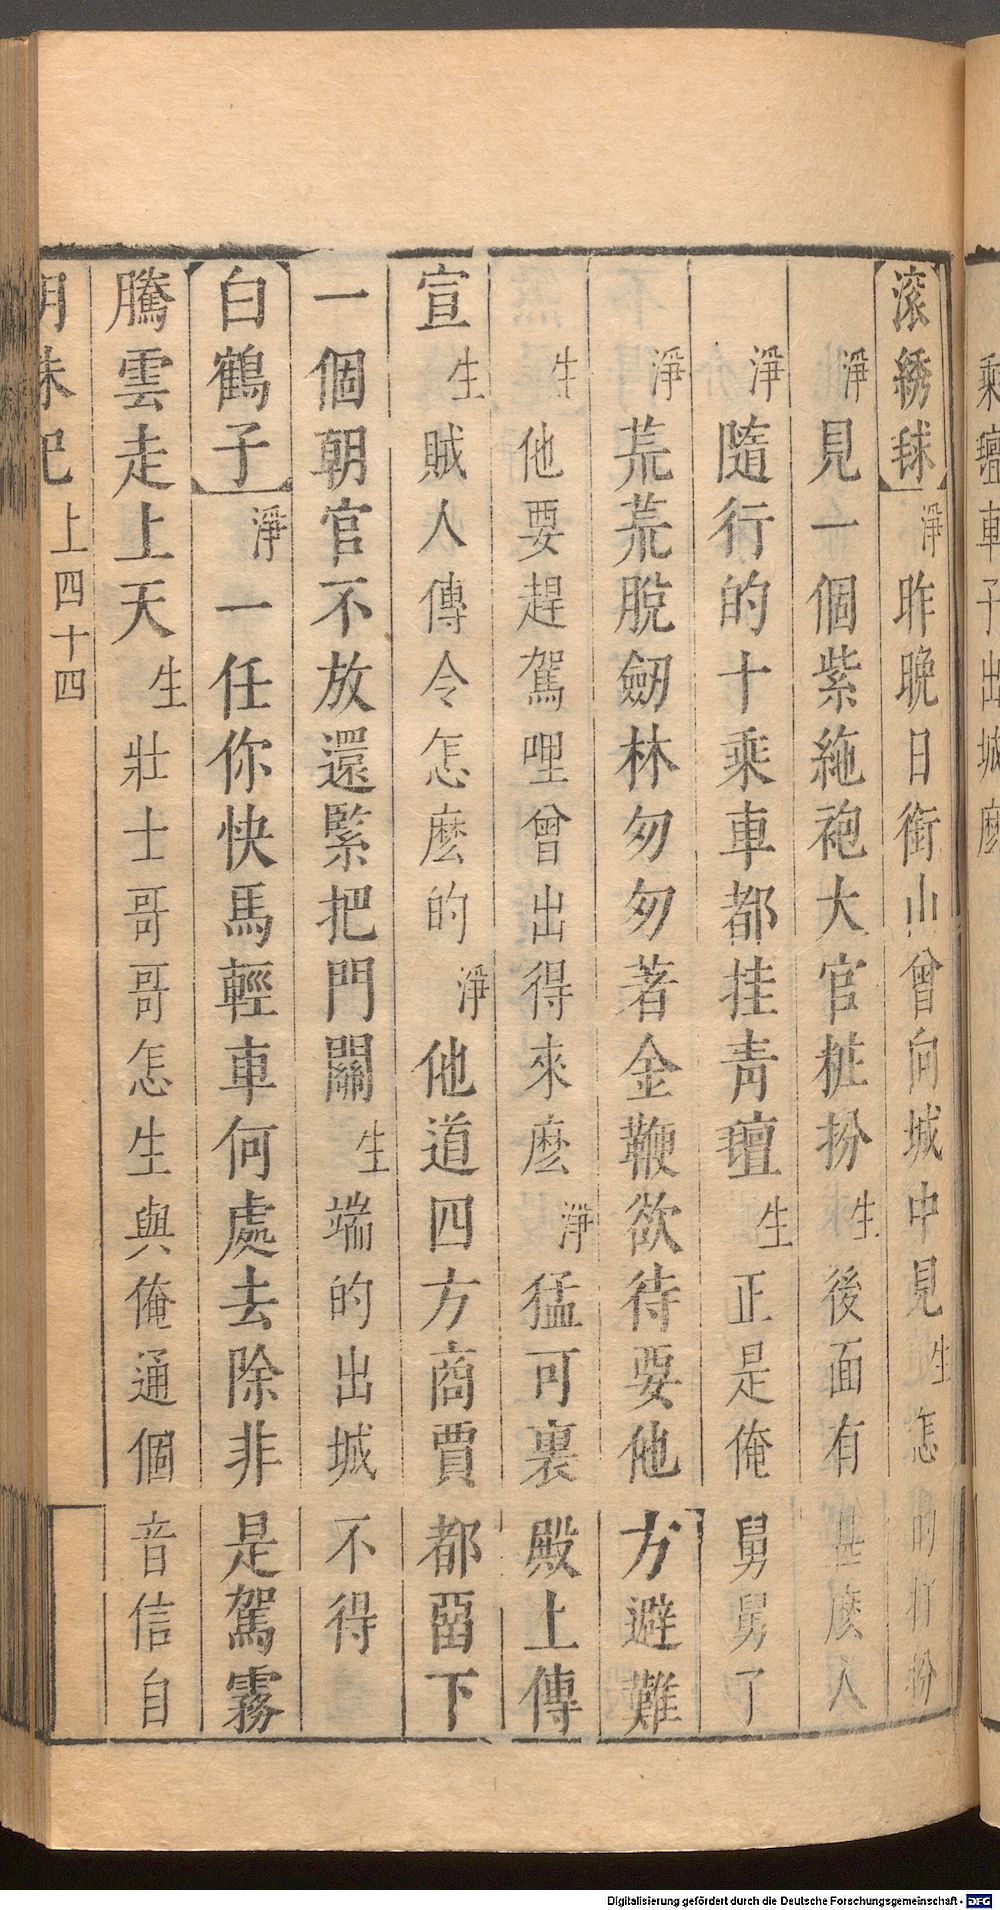 乘䡀車子出城麽
滾綉毬淨昨晚日銜山曾向城中見生怎的打扮
淨見一個紫絁袍大官粧扮生後面有甚麽人
淨隨行的十乘車都挂靑䡀生正是俺舅舅了
淨荒荒脫劒林匆匆著金鞭欲待要他方避難
生他要趕駕哩曾出得來麽淨猛可裏殿上傳
宣生賊人傳令怎麽的淨他道四方商賈都留下
一個朝官不放還緊把門關生端的出城不得
白鶴子淨一任你快馬輕車何處去除非是駕霧
騰雲走上天生壯士哥哥怎生與俺通個音信自
明珠記 上四十四
Digitalisierung gefördert durch die Deutsche Forschungsgemeinschaft - DFG